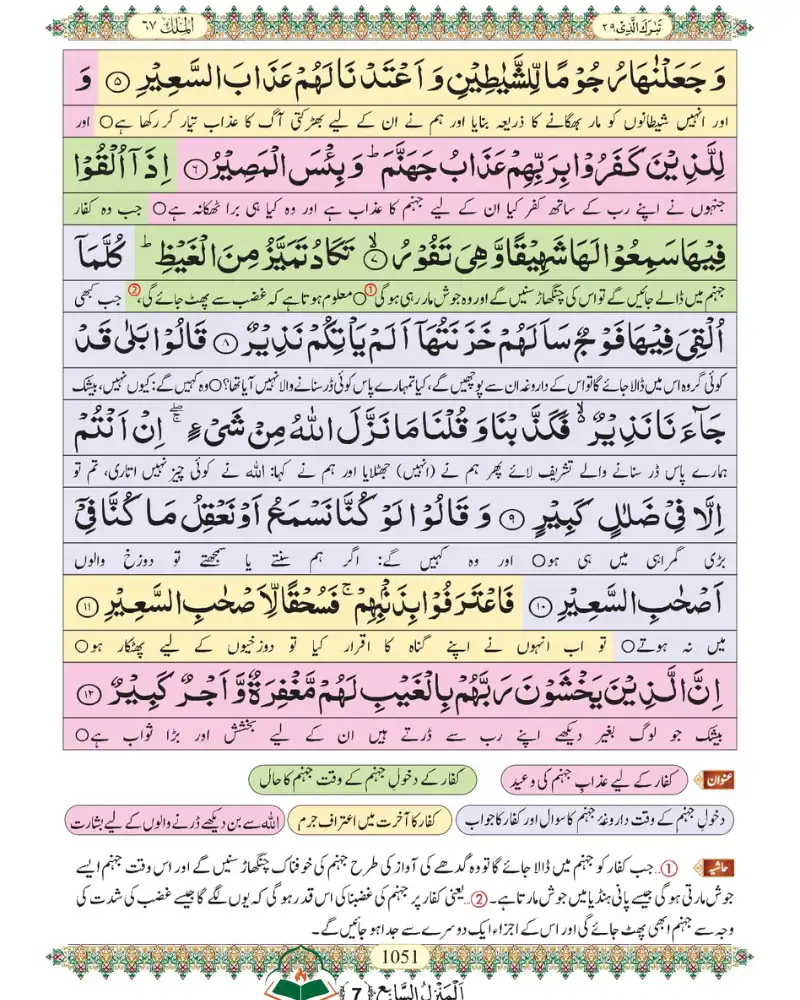 تَبٰرَكَ الَّذِیْ ۲۹
اَلْمُلْك ۶۷
وَ جَعَلْنٰهَا رُجُوْمًا لِّلشَّیٰطِیْنِ وَ اَعْتَدْنَا لَهُمْ عَذَابَ السَّعِیْرِ ﴿۵﴾ وَ
اور انہیں شیطانوں کو مار بھگانے کا ذریعہ بنایا اور ہم نے ان کے لیے بھڑکتی آگ کا عذاب تیار کر رکھا ہے○ اور
لِلَّذِیْنَ كَفَرُوْا بِرَبِّهِمْ عَذَابُ جَهَنَّمَ ؕ وَ بِئْسَ الْمَصِیْرُ ﴿۶﴾ اِذَاۤ اُلْقُوْا
جنہوں نے اپنے رب کے ساتھ کفر کیا ان کے لیے جہنم کا عذاب ہے اور وہ کیا ہی برا ٹھکانہ ہے○ جب وہ کفار
فِیْهَا سَمِعُوْا لَهَا شَهِیْقًا وَّ هِیَ تَفُوْرُ ۙ﴿۷﴾ تَكَادُ تَمَیَّزُ مِنَ الْغَیْظِ ؕ كُلَّمَاۤ
جہنم میں ڈالے جائیں گے تو اس کی چنگھاڑ سنیں گے اور وہ جوش مار رہی ہوگی①○ معلوم ہوتا ہے کہ غضب سے پھٹ جائے گی،② جب کبھی
اُلْقِیَ فِیْهَا فَوْجٌ سَاَلَهُمْ خَزَنَتُهَاۤ اَلَمْ یَاْتِكُمْ نَذِیْرٌ ﴿۸﴾ قَالُوْا بَلٰى قَدْ
کوئی گروہ اس میں ڈالا جائے گا تو اس کے داروغہ ان سے پوچھیں گے، کیا تمہارے پاس کوئی ڈر سنانے والا نہیں آیا تھا؟○ وہ کہیں گے: کیوں نہیں، بیشک
جَآءَنَا نَذِیْرٌ ۙ۬ فَكَذَّبْنَا وَ قُلْنَا مَا نَزَّلَ اللّٰهُ مِنْ شَیْءٍ ۚۖ اِنْ اَنْتُمْ
ہمارے پاس ڈر سنانے والے تشریف لائے پھر ہم نے (انہیں) جھٹلایا اور ہم نے کہا: اللہ نے کوئی چیز نہیں اتاری، تم تو
اِلَّا فِیْ ضَلٰلٍ كَبِیْرٍ ﴿۹﴾ وَ قَالُوْا لَوْ كُنَّا نَسْمَعُ اَوْ نَعْقِلُ مَا كُنَّا فِیْۤ
بڑی گمراہی میں ہی ہو○ اور وہ کہیں گے: اگر ہم سنتے یا سمجھتے تو دوزخ والوں
اَصْحٰبِ السَّعِیْرِ ﴿۱۰﴾ فَاعْتَرَفُوْا بِذَنْۢبِهِمْ ۚ فَسُحْقًا لِّاَصْحٰبِ السَّعِیْرِ ﴿۱۱﴾
میں نہ ہوتے○ تو اب انہوں نے اپنے گناہ کا اقرار کیا تو دوزخیوں کے لیے پھٹکار ہو○
اِنَّ الَّذِیْنَ یَخْشَوْنَ رَبَّهُمْ بِالْغَیْبِ لَهُمْ مَّغْفِرَةٌ وَّ اَجْرٌ كَبِیْرٌ ﴿۱۲﴾
بیشک جو لوگ بغیر دیکھے اپنے رب سے ڈرتے ہیں ان کے لیے بخشش اور بڑا ثواب ہے○
عنوان کفار کے لیے عذابِ جہنم کی وعید کفار کے دخولِ جہنم کے وقت جہنم کا حال
دخولِ جہنم کے وقت داروغۂ جہنم کا سوال اور کفار کا جواب کفار کا آخرت میں اعترافِ جرم اللہ سے بن دیکھے ڈرنے والوں کے لیے بشارت
حاشیہ ①...جب کفار کو جہنم میں ڈالا جائے گا تو وہ گدھے کی آواز کی طرح جہنم کی خوفناک چنگھاڑ سنیں گے اور اس وقت جہنم ایسے
جوش مارتی ہوگی جیسے پانی ہنڈیا میں جوش مارتا ہے۔ ②...یعنی کفار پر جہنم کی غضبناکی اس قدر ہوگی کہ یوں لگے گا جیسے غضب کی شدت کی
وجہ سے جہنم ابھی پھٹ جائے گی اور اس کے اجزاء ایک دوسرے سے جدا ہو جائیں گے۔
1051
اَلْمَنْزِلُ السَّابِع ﴿7﴾